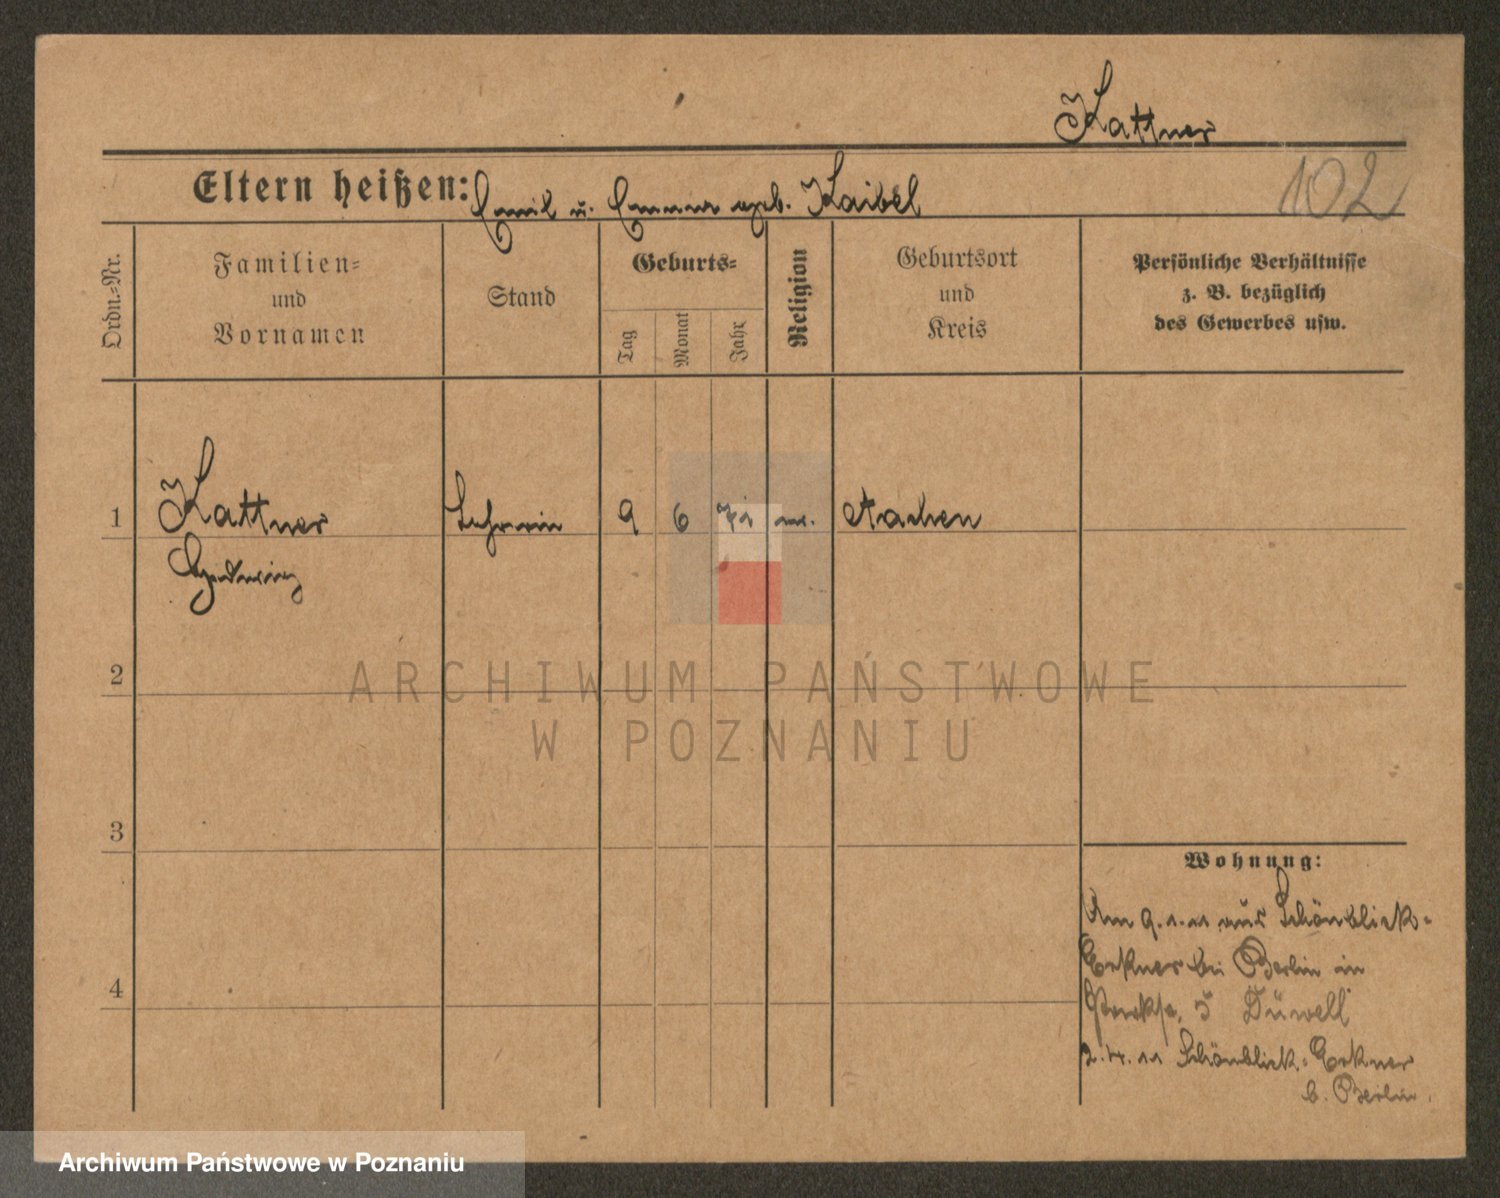 Kattner
102
Eltern heißen: Emil u. Emma geb. Kaibel
Ordn.-Nr.
Familien-
und
Vornamen
Stand
Geburts-
Tag
Monat
Jahr
Religion
Geburtsort
und
Kreis
Persönliche Verhältnisse
z. B. bezüglich
des Gewerbes usw.
1
Kattner
Hedwig
Lehrerin
9
6
Aachen
2
3
4
Wohnung:
Am 9.1.11 aus Schönblick-
Erkner bei Berlin in
Parkstr. 5 Düwell
2.4.11 Schönblick-Erkner
b. Berlin.
ARCHIWUM PAŃSTWOWE
W POZNANIU
Archiwum Państwowe w Poznaniu